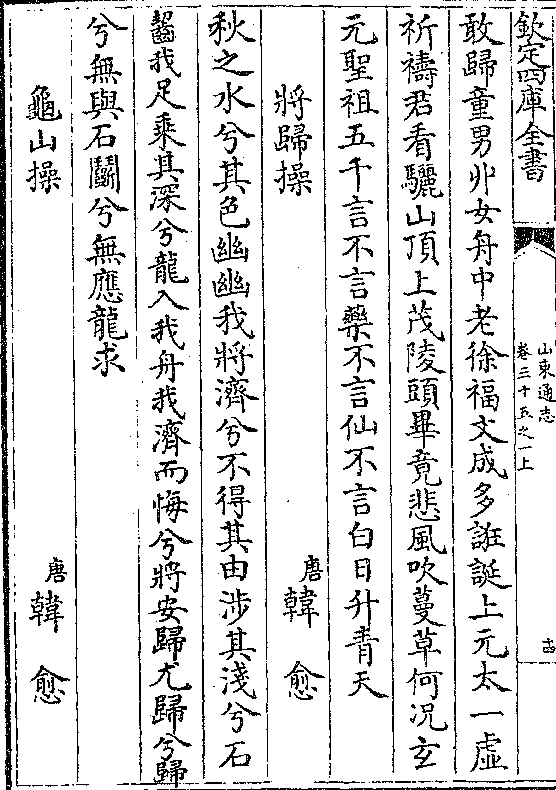 欽定四庫全書
山東通志
卷三十五之一上
敢歸童男丱女舟中老徐福文成多誑誕上元太一虛
祈禱君看驪山頂上茂陵頭畢竟悲風吹蔓草何况玄
元聖祖五千言不言藥不言仙不言白日升青天
將歸操
唐韓愈
秋之水兮其色幽幽我將濟兮不得其由涉其淺兮石
齧我足乘其深兮龍入我舟我濟而悔兮將安歸尤歸兮歸
兮無與石鬬兮無應龍求
龜山操
唐韓愈